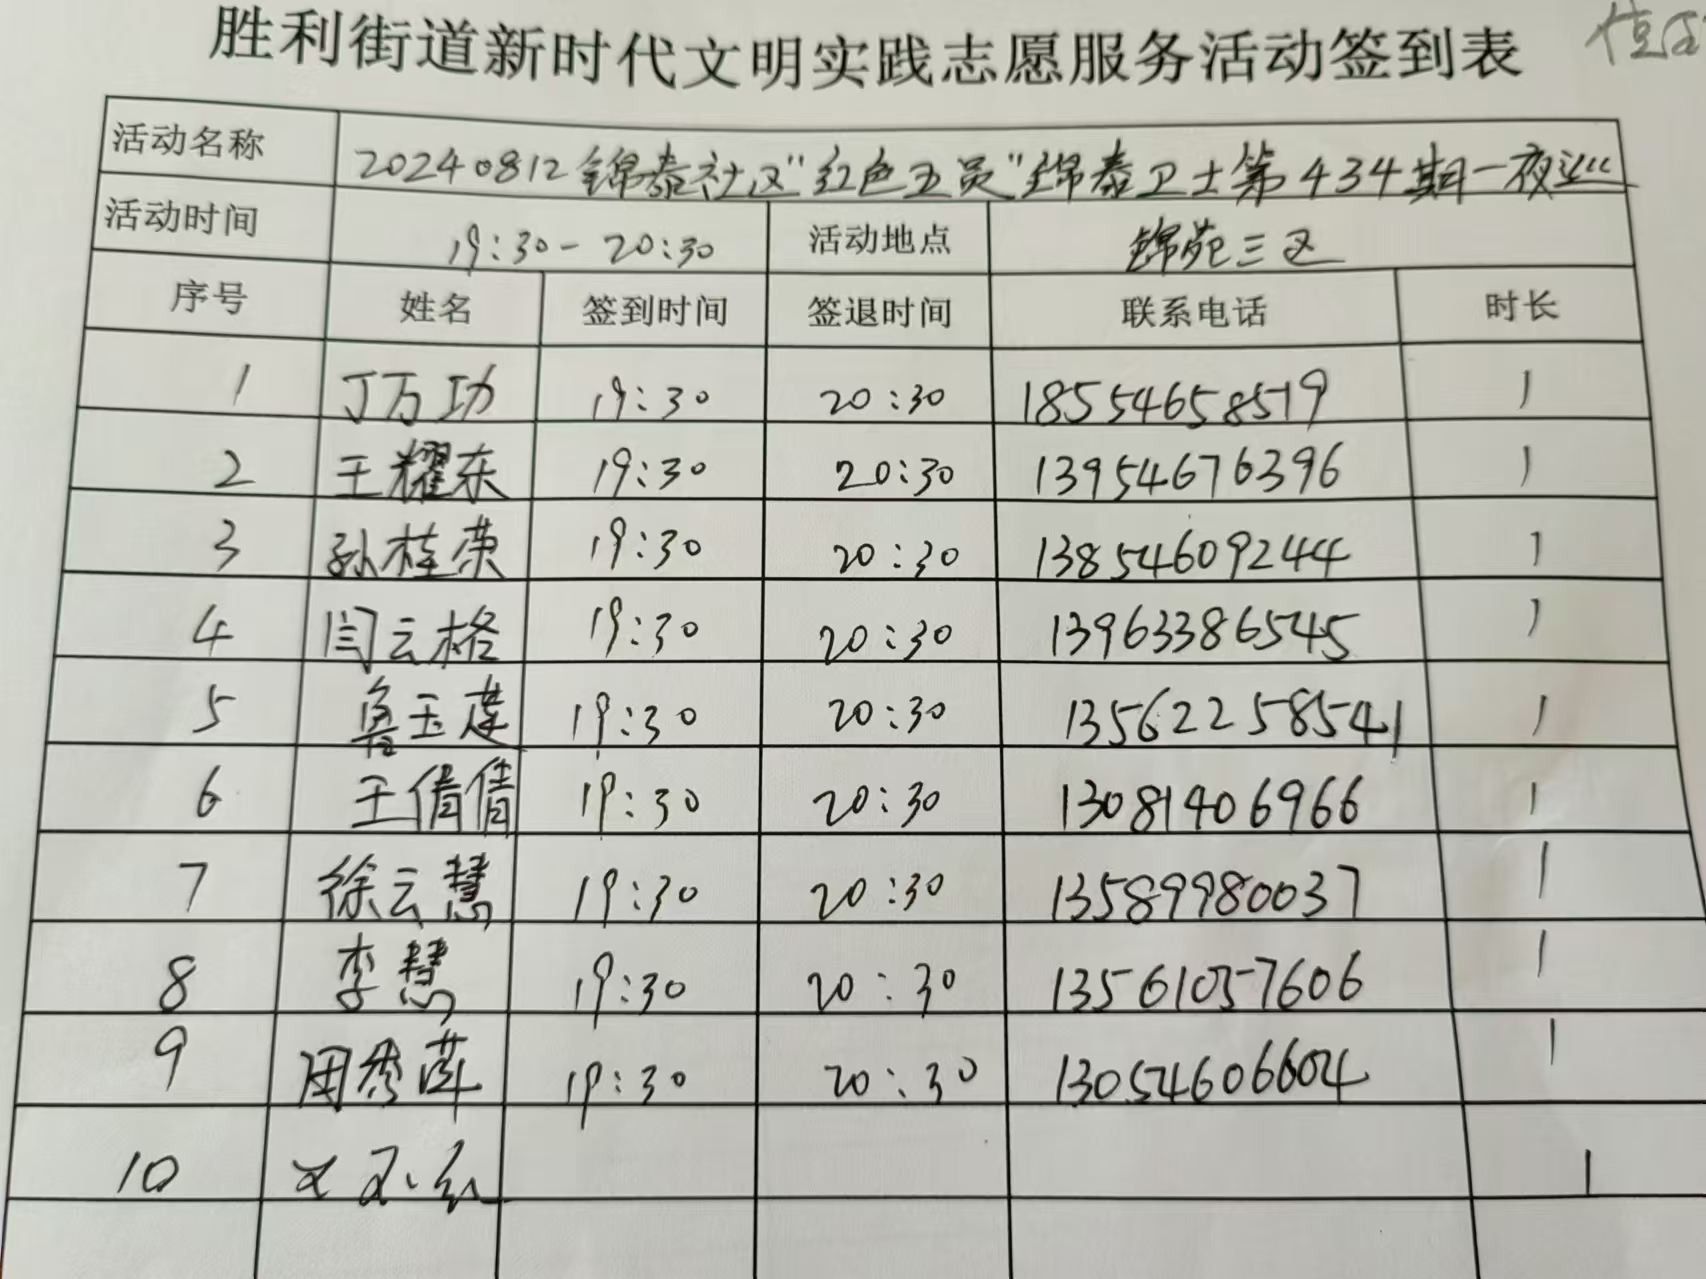 胜利街道新时代文明实践志愿服务活动签到表
活动名称 20240812锦泰社区"红色五员"锦泰卫士第434期一夜巡
活动时间 19:30-20:30 活动地点 锦苑三区
序号 姓名 签到时间 签退时间 联系电话 时长
1 丁万功 19:30 20:30 18554658519 1
2 王耀东 19:30 20:30 13954676396 1
3 孙桂荣 19:30 20:30 13854609244 1
4 闫云格 19:30 20:30 13963386545 1
5 鲁玉莲 19:30 20:30 13562258541 1
6 王倩倩 19:30 20:30 13081406966 1
7 徐云慧 19:30 20:30 13589980037 1
8 李慧 19:30 20:30 13561057606 1
9 周秀萍 19:30 20:30 13054606604 1
10 1